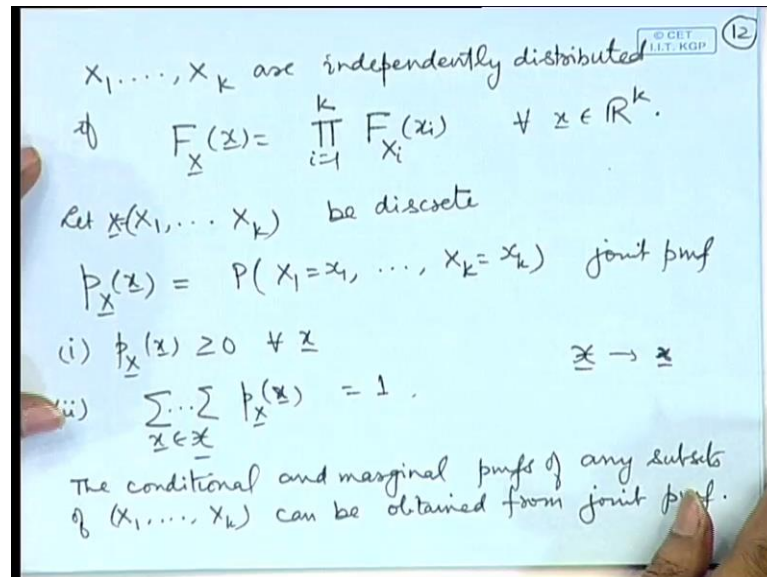 © CET
I.I.T. KGP
12
X₁, ...., X_k are independently distributed
if F_X(x) = ∏_{i=1}^{k} F_{X_i}(x_i) ∀ x ∈ ℝ^k.
Let X=(X₁, ... X_k) be discrete
p_X(x) = P(X₁=x₁, ..., X_k=x_k) joint pmf
(i) p_X(x) ≥ 0 ∀ x
X → 𝒳
(ii) Σ...Σ_{x ∈ 𝒳} p_X(x) = 1.
The conditional and marginal pmfs of any subsets
of (X₁, ...., X_k) can be obtained from joint pmf.